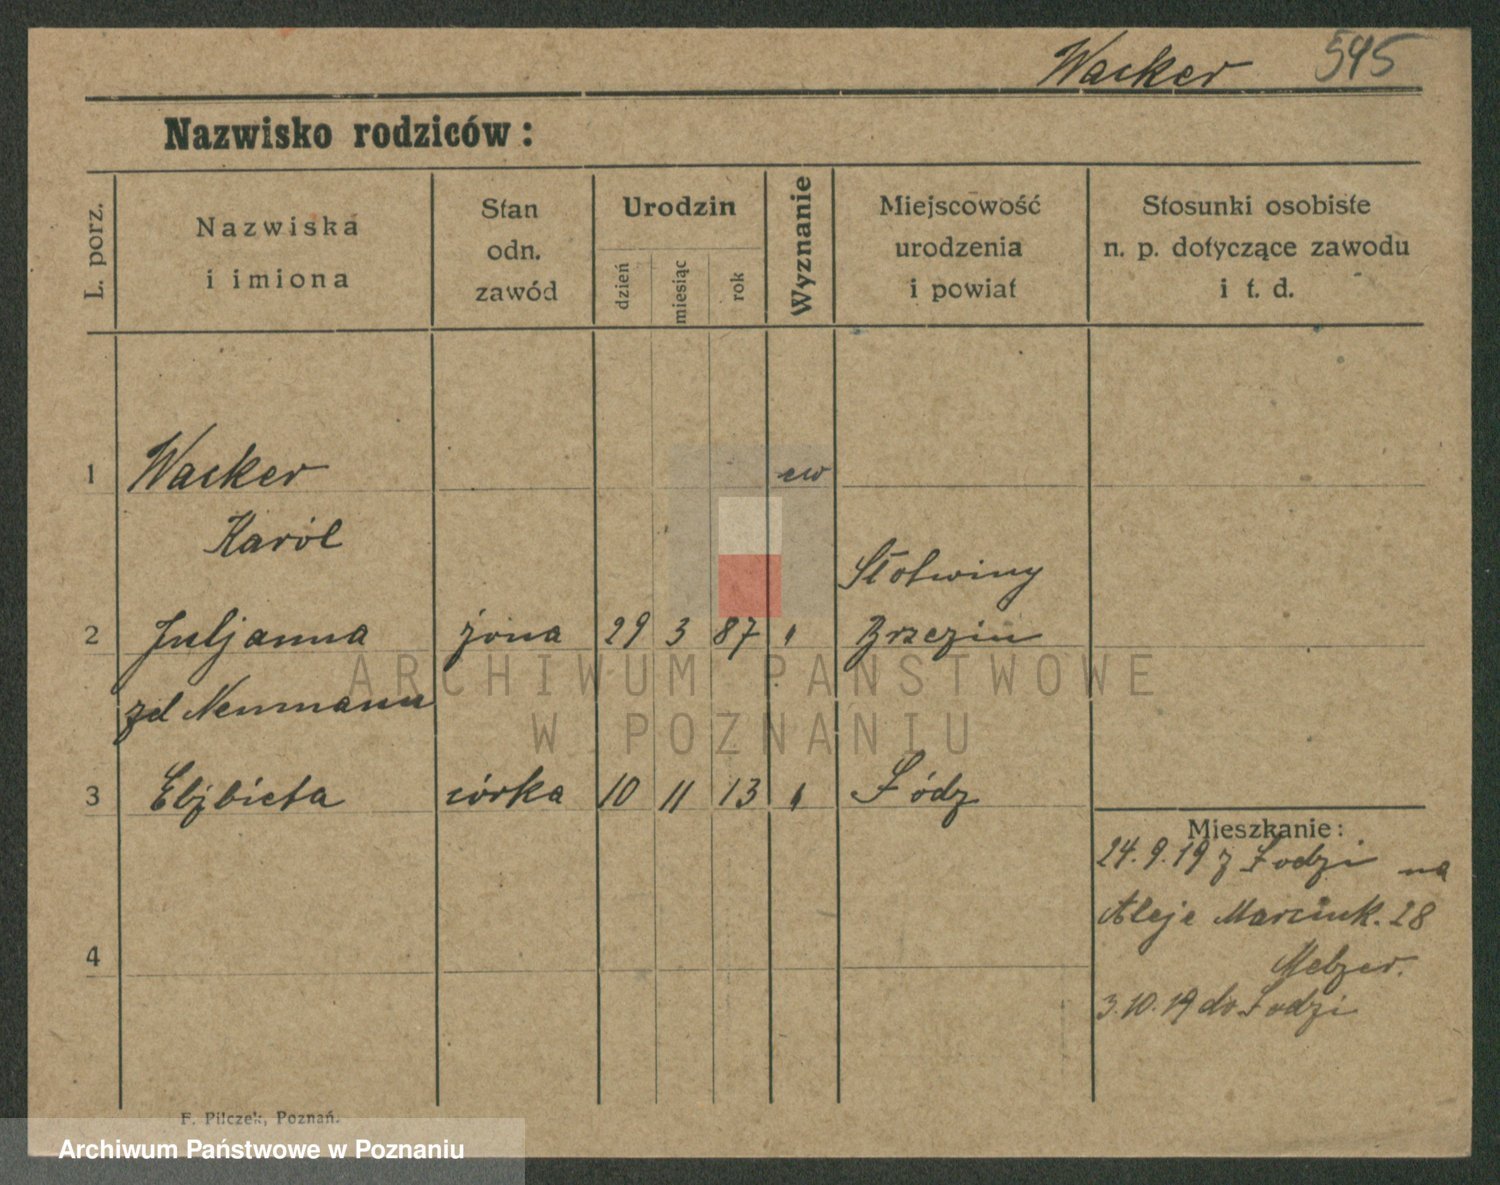 Wacker 545
Nazwisko rodziców:
L. porz.
Nazwiska
i imiona
Stan
odn.
zawód
Urodzin
dzień
miesiąc
rok
Wyznanie
Miejscowość
urodzenia
i powiat
Stosunki osobiste
n. p. dotyczące zawodu
i t. d.
1 Wacker ew
Karól
Stotwiny
2 Juljanna żona 29 3 87 " Brzezin
zd Neumann
3 Elżbieta córka 10 11 13 " Łódz
Mieszkanie:
24.9.19 z Łodzi na
Aleje Marcink. 28
Melzer.
4
3.10.19 do Łodzi
F. Pilczek, Poznań.
ARCHIWUM PAŃSTWOWE
W POZNANIU
Archiwum Państwowe w Poznaniu